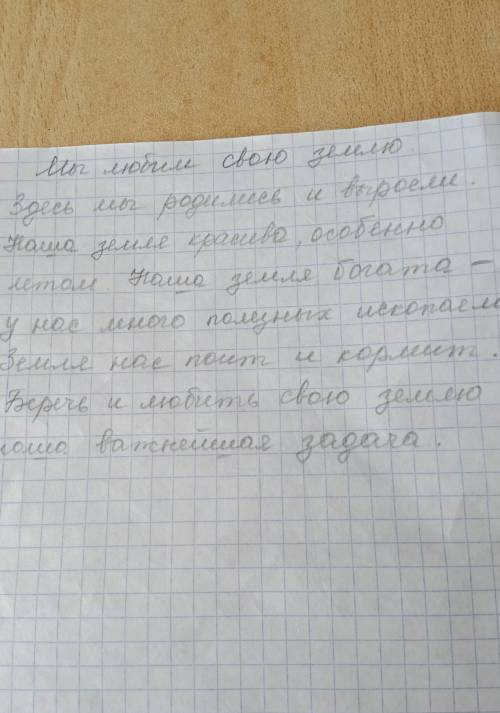 Мы любим свою землю.
Здесь мы родились и выросли.
Наша земля красива, особенно
летом. Наша земля богата –
у нас много полезных ископаем
Земля нас поит и кормит.
Беречь и любить свою землю
наша важнейшая задача.